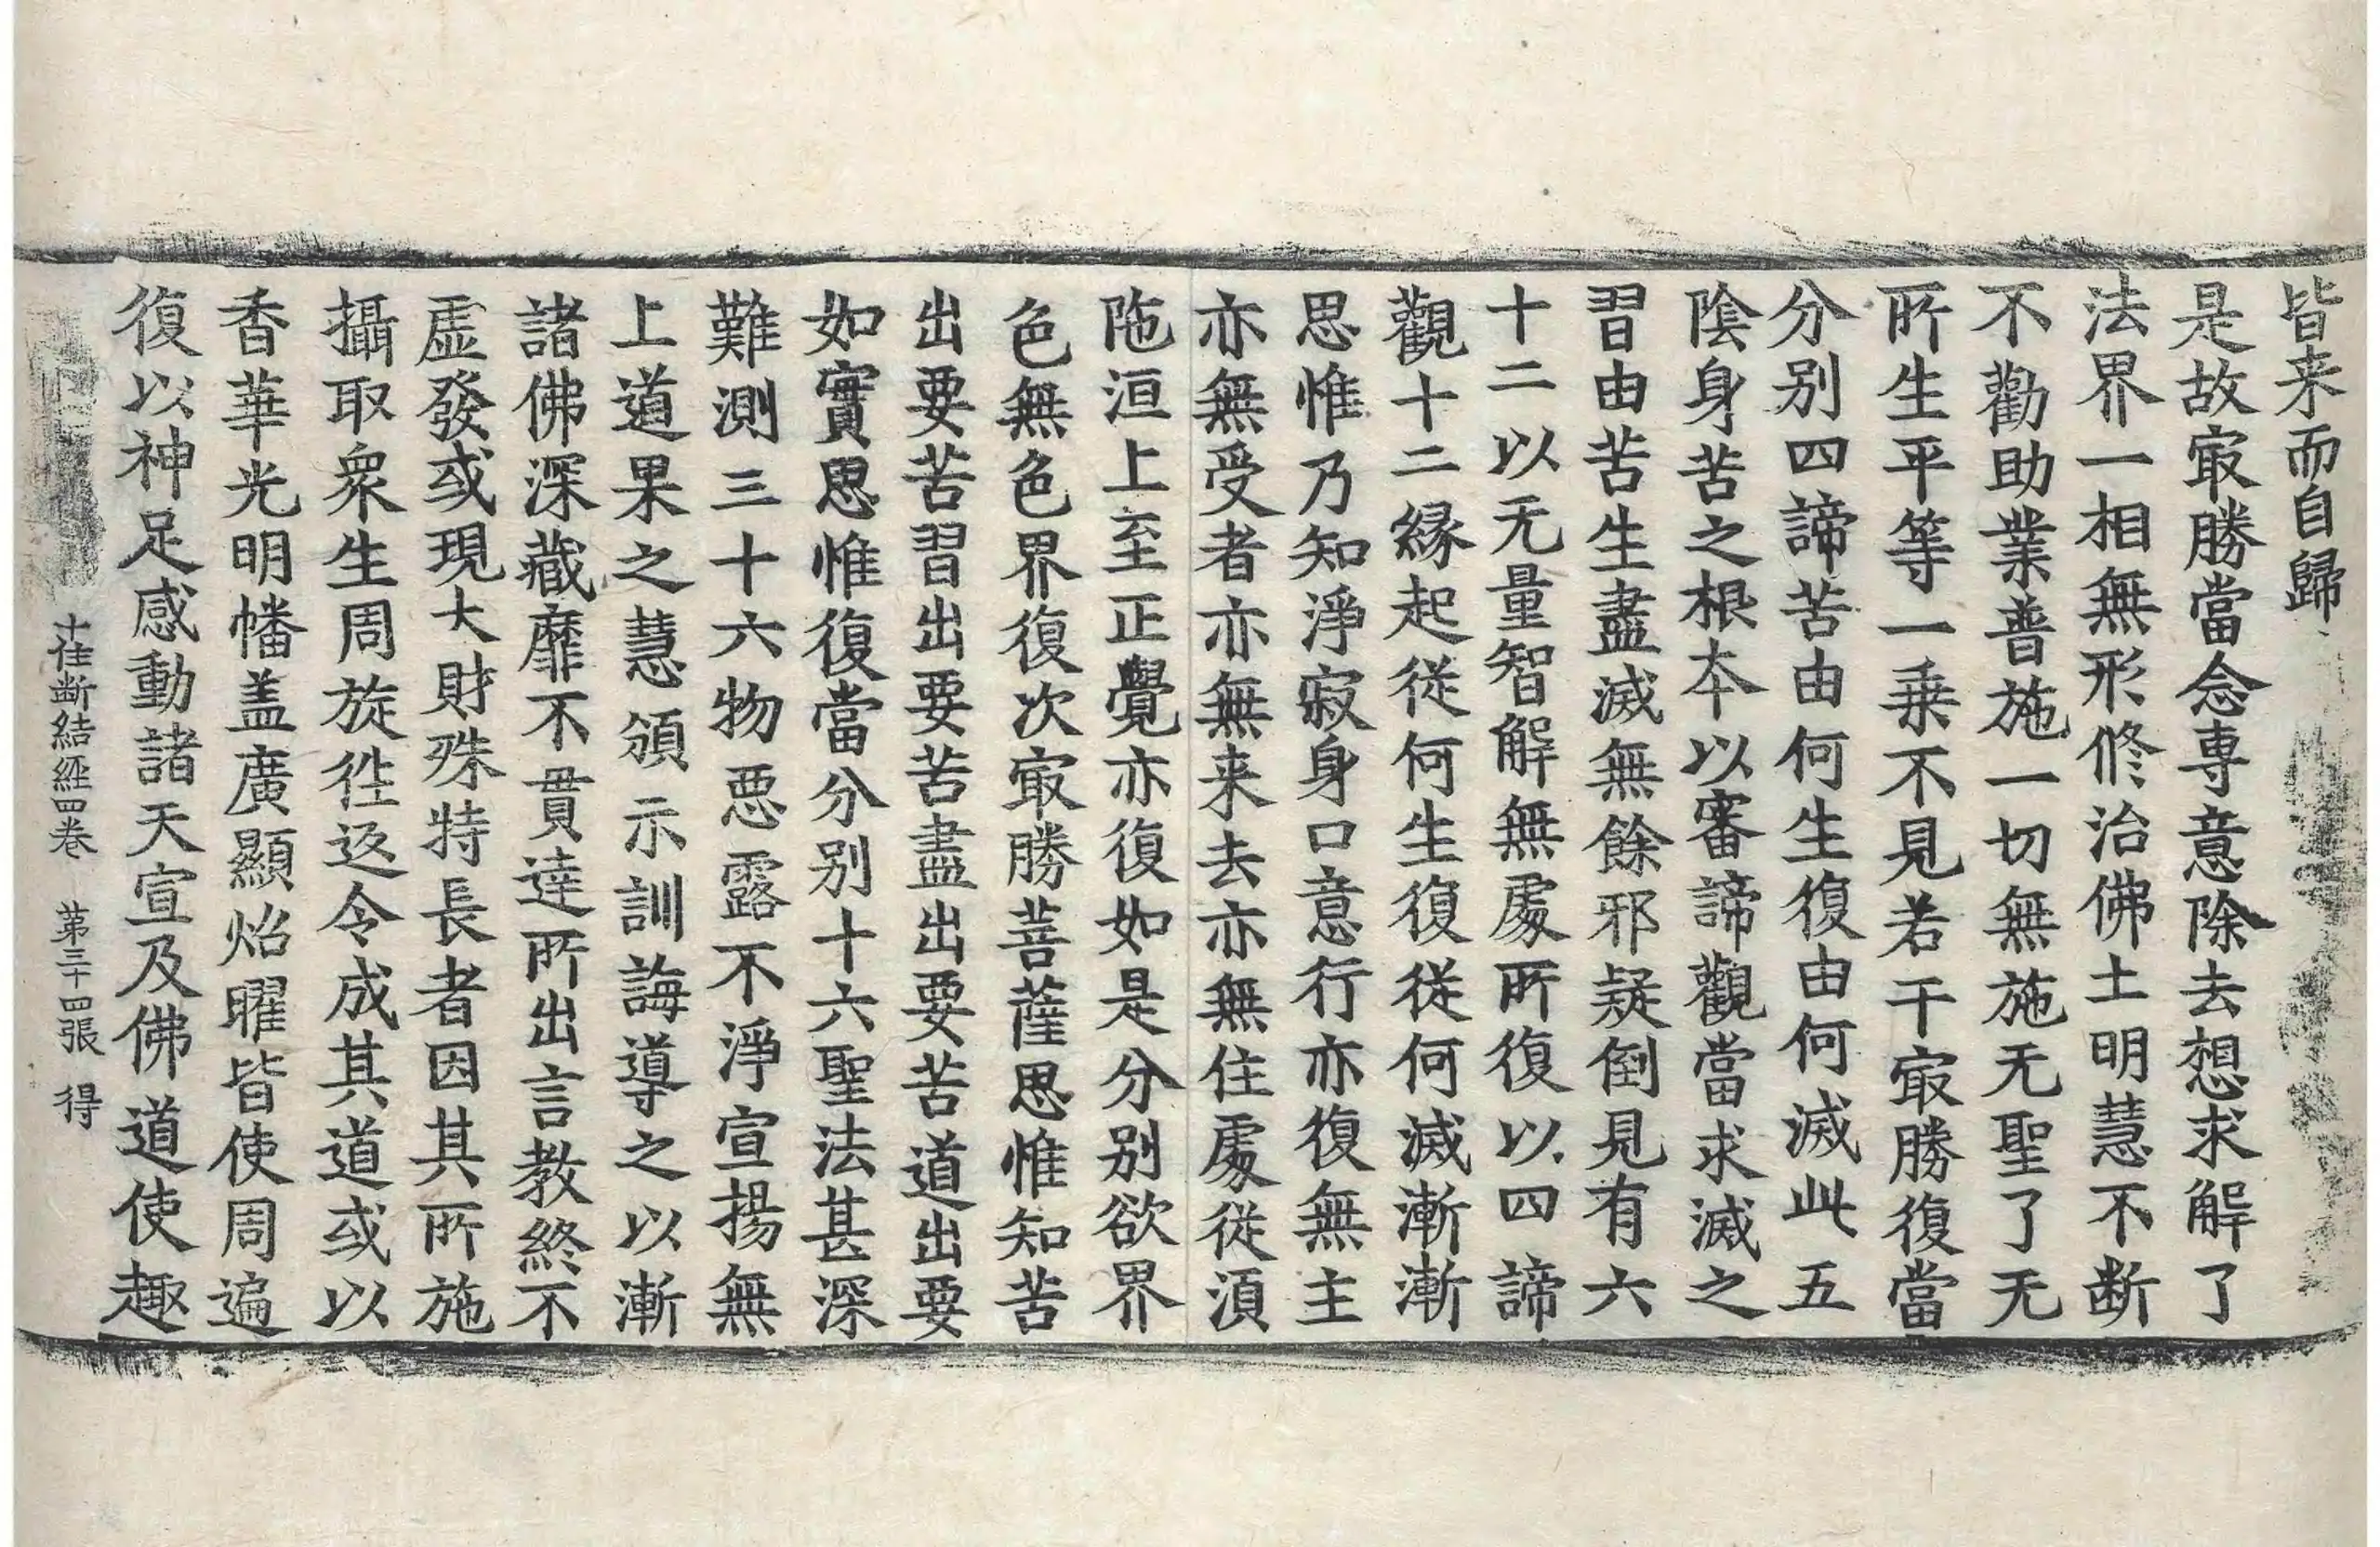 皆来而自歸
是故㝡勝當念專意除去想求解了
法界一相無形修治佛土明慧不断
不勸助業普施一切無施无聖了无
所生平等一乗不見若干㝡勝復當
分别四諦苦由何生復由何滅此五
陰身苦之根本以審諦觀當求滅之
習由苦生盡滅無餘邪疑倒見有六
十二以无量智解無處所復以四諦
觀十二縁起従何生復従何滅漸漸
思惟乃知淨寂身口意行亦復無主
亦無受者亦無来去亦無住處従湏
陁洹上至正覺亦復如是分别欲界
色無色界復次㝡勝菩薩思惟知苦
出要苦習出要苦盡出要苦道出要
如實思惟復當分别十六聖法甚深
難測三十六物悪露不淨宣揚無
上道果之慧頒示訓誨導之以漸
諸佛深藏靡不貫達所出言教終不
虚發或現大財殊特長者因其所施
攝取衆生周旋徃返令成其道或以
香華光明幡盖廣顯炤曜皆使周遍
復以神足感動諸天宣及佛道使趣
十住断結經四巻 第三十四張 得